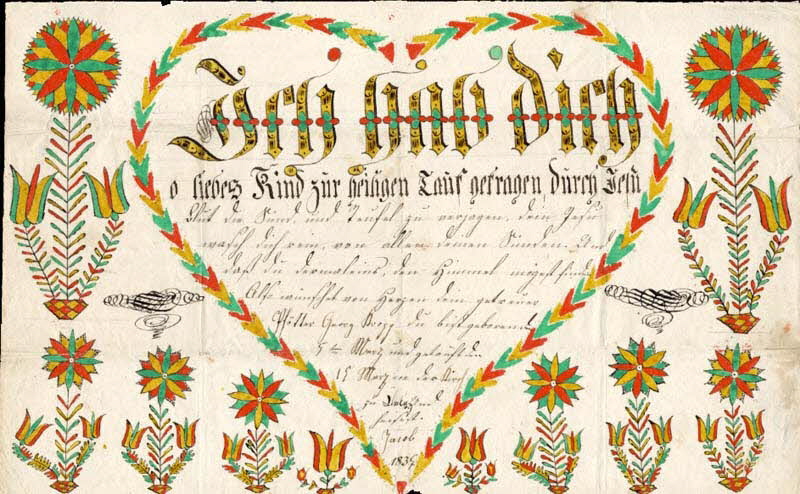 Ich hab dich
o liebes Kind zur heiligen Tauf getragen durch Jesu
Blut die Sünd, und Teufel zu verjagen, dein Jesu
wasch dich rein, von allen deinen Sünden. Und
daß du dermaleins, den Himmel mögest finden
Also wünschet von Herzen dein getreuer
Georg du bist geboren den
5 ten Merz und getauft den
15 Merz in der Kirch
zu
Jacob